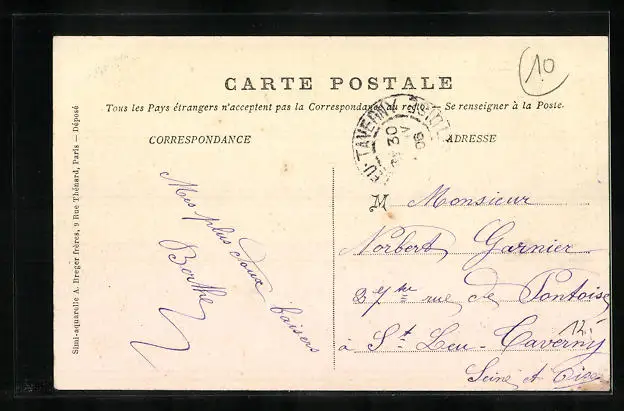 10
CARTE POSTALE
Tous les Pays étrangers n'acceptent pas la Correspondance au recto. — Se renseigner à la Poste.
CORRESPONDANCE
ADRESSE
EU-TAVERNY
30
06
Mes plus doux baisers
Berthe
M Monsieur
Norbert Garnier
rue de Pontoise
à St Leu-Taverny
Seine et Oise
12.-
Simi-aquarelle A. Breger frères, 9 Rue Thénard, Paris — Déposé